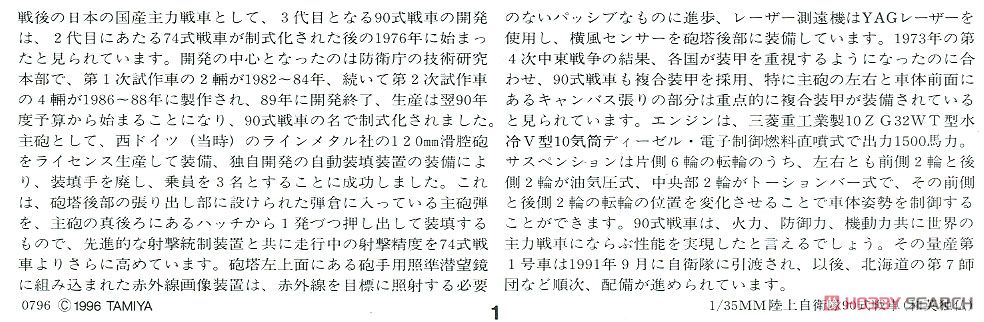 戦後の日本の国産主力戦車として、３代目となる90式戦車の開発
は、２代目にあたる74式戦車が制式化された後の1976年に始まっ
たと見られています。開発の中心となったのは防衛庁の技術研究
本部で、第１次試作車の２輌が1982〜84年、続いて第２次試作車
の４輌が1986〜88年に製作され、89年に開発終了、生産は翌90年
度予算から始まることになり、90式戦車の名で制式化されました。
主砲として、西ドイツ（当時）のラインメタル社の１２０㎜滑腔砲
をライセンス生産して装備、独自開発の自動装填装置の装備によ
り、装填手を廃し、乗員を３名とすることに成功しました。これ
は、砲塔後部の張り出し部に設けられた弾倉に入っている主砲弾
を、主砲の真後ろにあるハッチから１発づつ押し出して装填する
もので、先進的な射撃統制装置と共に走行中の射撃精度を74式戦
車よりさらに高めています。砲塔左上面にある砲手用照準潜望鏡
に組み込まれた赤外線画像装置は、赤外線を目標に照射する必要
のないパッシブなものに進歩、レーザー測遠機はYAGレーザーを
使用し、横風センサーを砲塔後部に装備しています。1973年の第
４次中東戦争の結果、各国が装甲を重視するようになったのに合
わせ、90式戦車も複合装甲を採用、特に主砲の左右と車体前面に
あるキャンバス張りの部分は重点的に複合装甲が装備されている
と見られています。エンジンは、三菱重工業製10ＺＧ32ＷＴ型水
冷Ｖ型10気筒ディーゼル・電子制御燃料直噴式で出力1500馬力。
サスペンションは片側６輪の転輪のうち、左右とも前側２輪と後
側２輪が油気圧式、中央部２輪がトーションバー式で、その前側
と後側２輪の転輪の位置を変化させることで車体姿勢を制御する
ことができます。90式戦車は、火力、防御力、機動力共に世界の
主力戦車にならぶ性能を実現したと言えるでしょう。その量産第
１号車は1991年９月に自衛隊に引渡され、以後、北海道の第７師
団など順次、配備が進められています。
0796 ©1996 TAMIYA
1
1/35MM陸上自衛隊90式戦車
HOBBY SEARCH